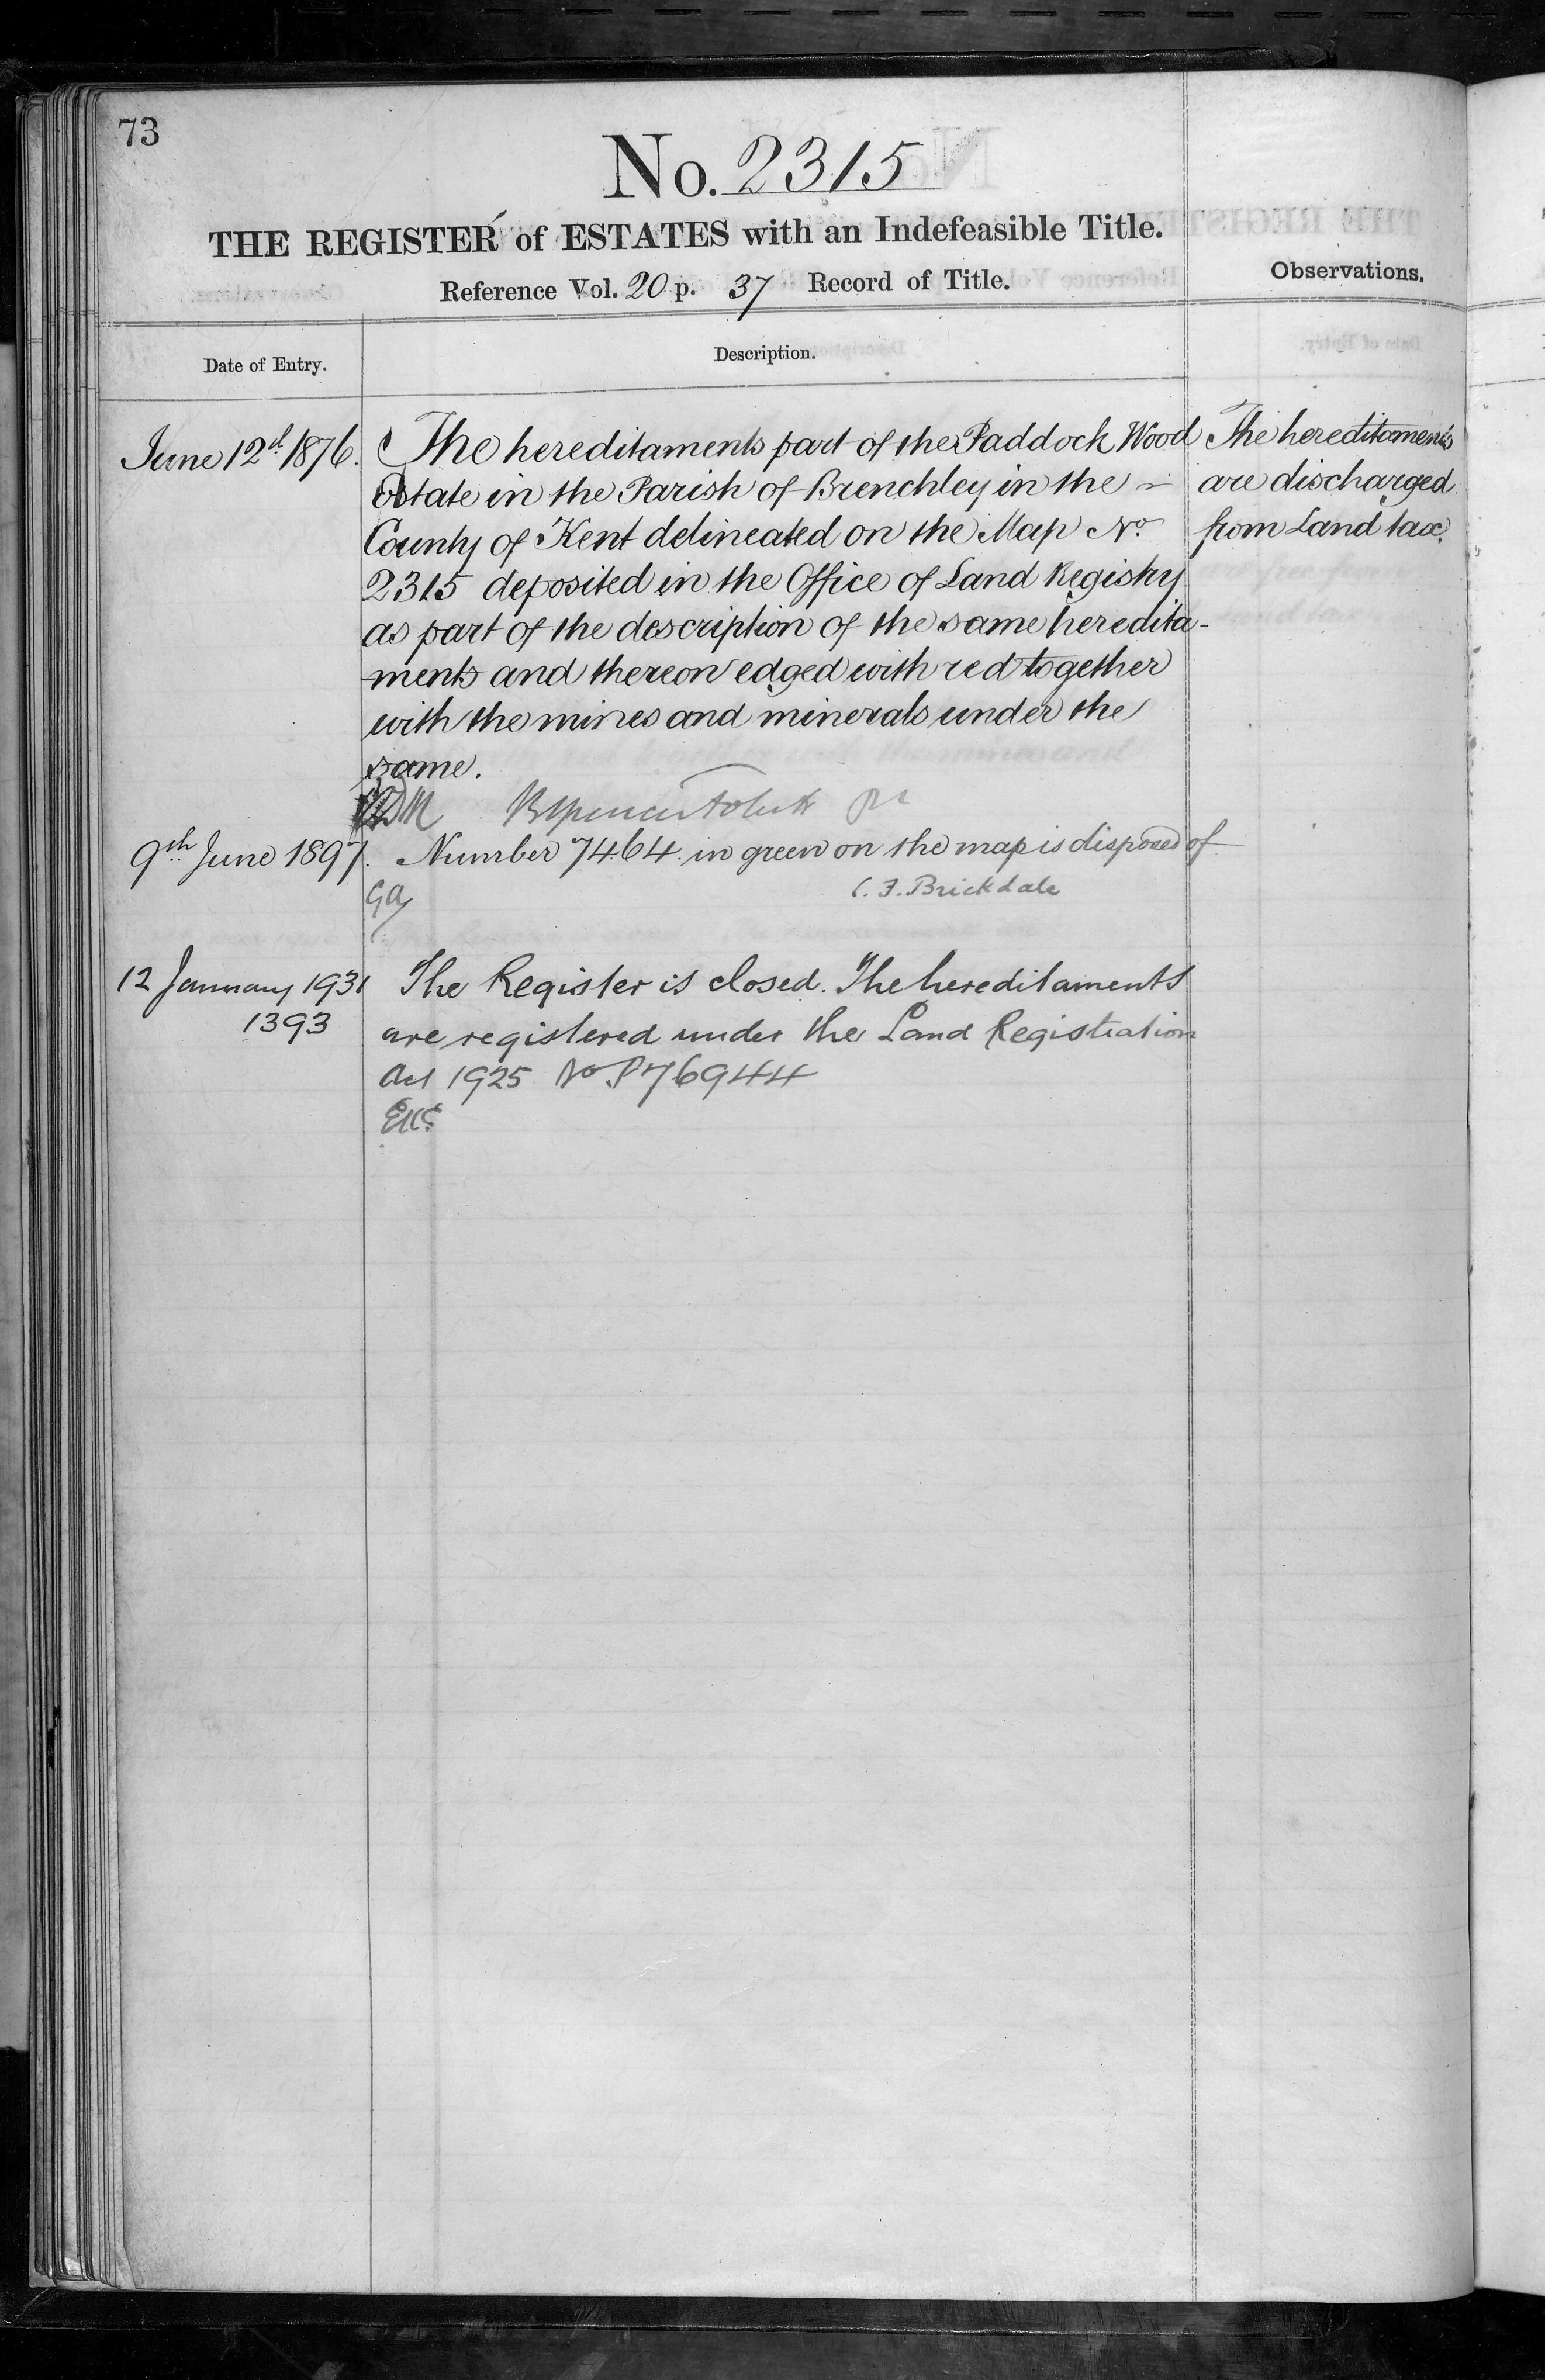 73
No. 2315
THE REGISTER of ESTATES with an Indefeasible Title.
Reference Vol. 20 p. 37 Record of Title.
Observations.
Date of Entry.
Description.
June 12th 1876.
The hereditaments part of the Paddock Wood
Estate in the Parish of Brenchley in the
County of Kent delineated on the Map No.
2315 deposited in the Office of Land Registry
as part of the description of the same heredita-
ments and thereon edged with red together
with the mines and minerals under the
same.
The hereditaments
are discharged
from Land tax.
9th June 1897.
Number 7464 in green on the map is disposed of
GA
C. F. Brickdale
12 January 1931
1393
The Register is closed. The hereditaments
are registered under the Land Registration
Act 1925 No P76944